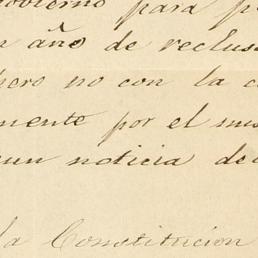 obierno para p
n año de reclus
pero no con la c
mente por el mis
gun noticia de
la Constitucion